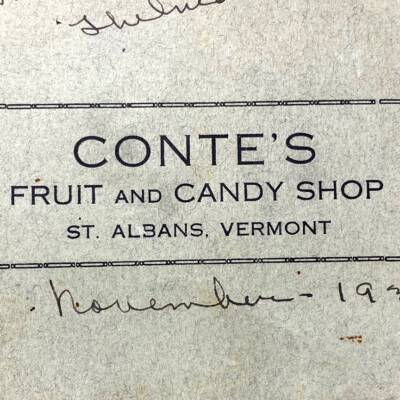 CONTE'S
FRUIT AND CANDY SHOP
ST. ALBANS, VERMONT
November - 193